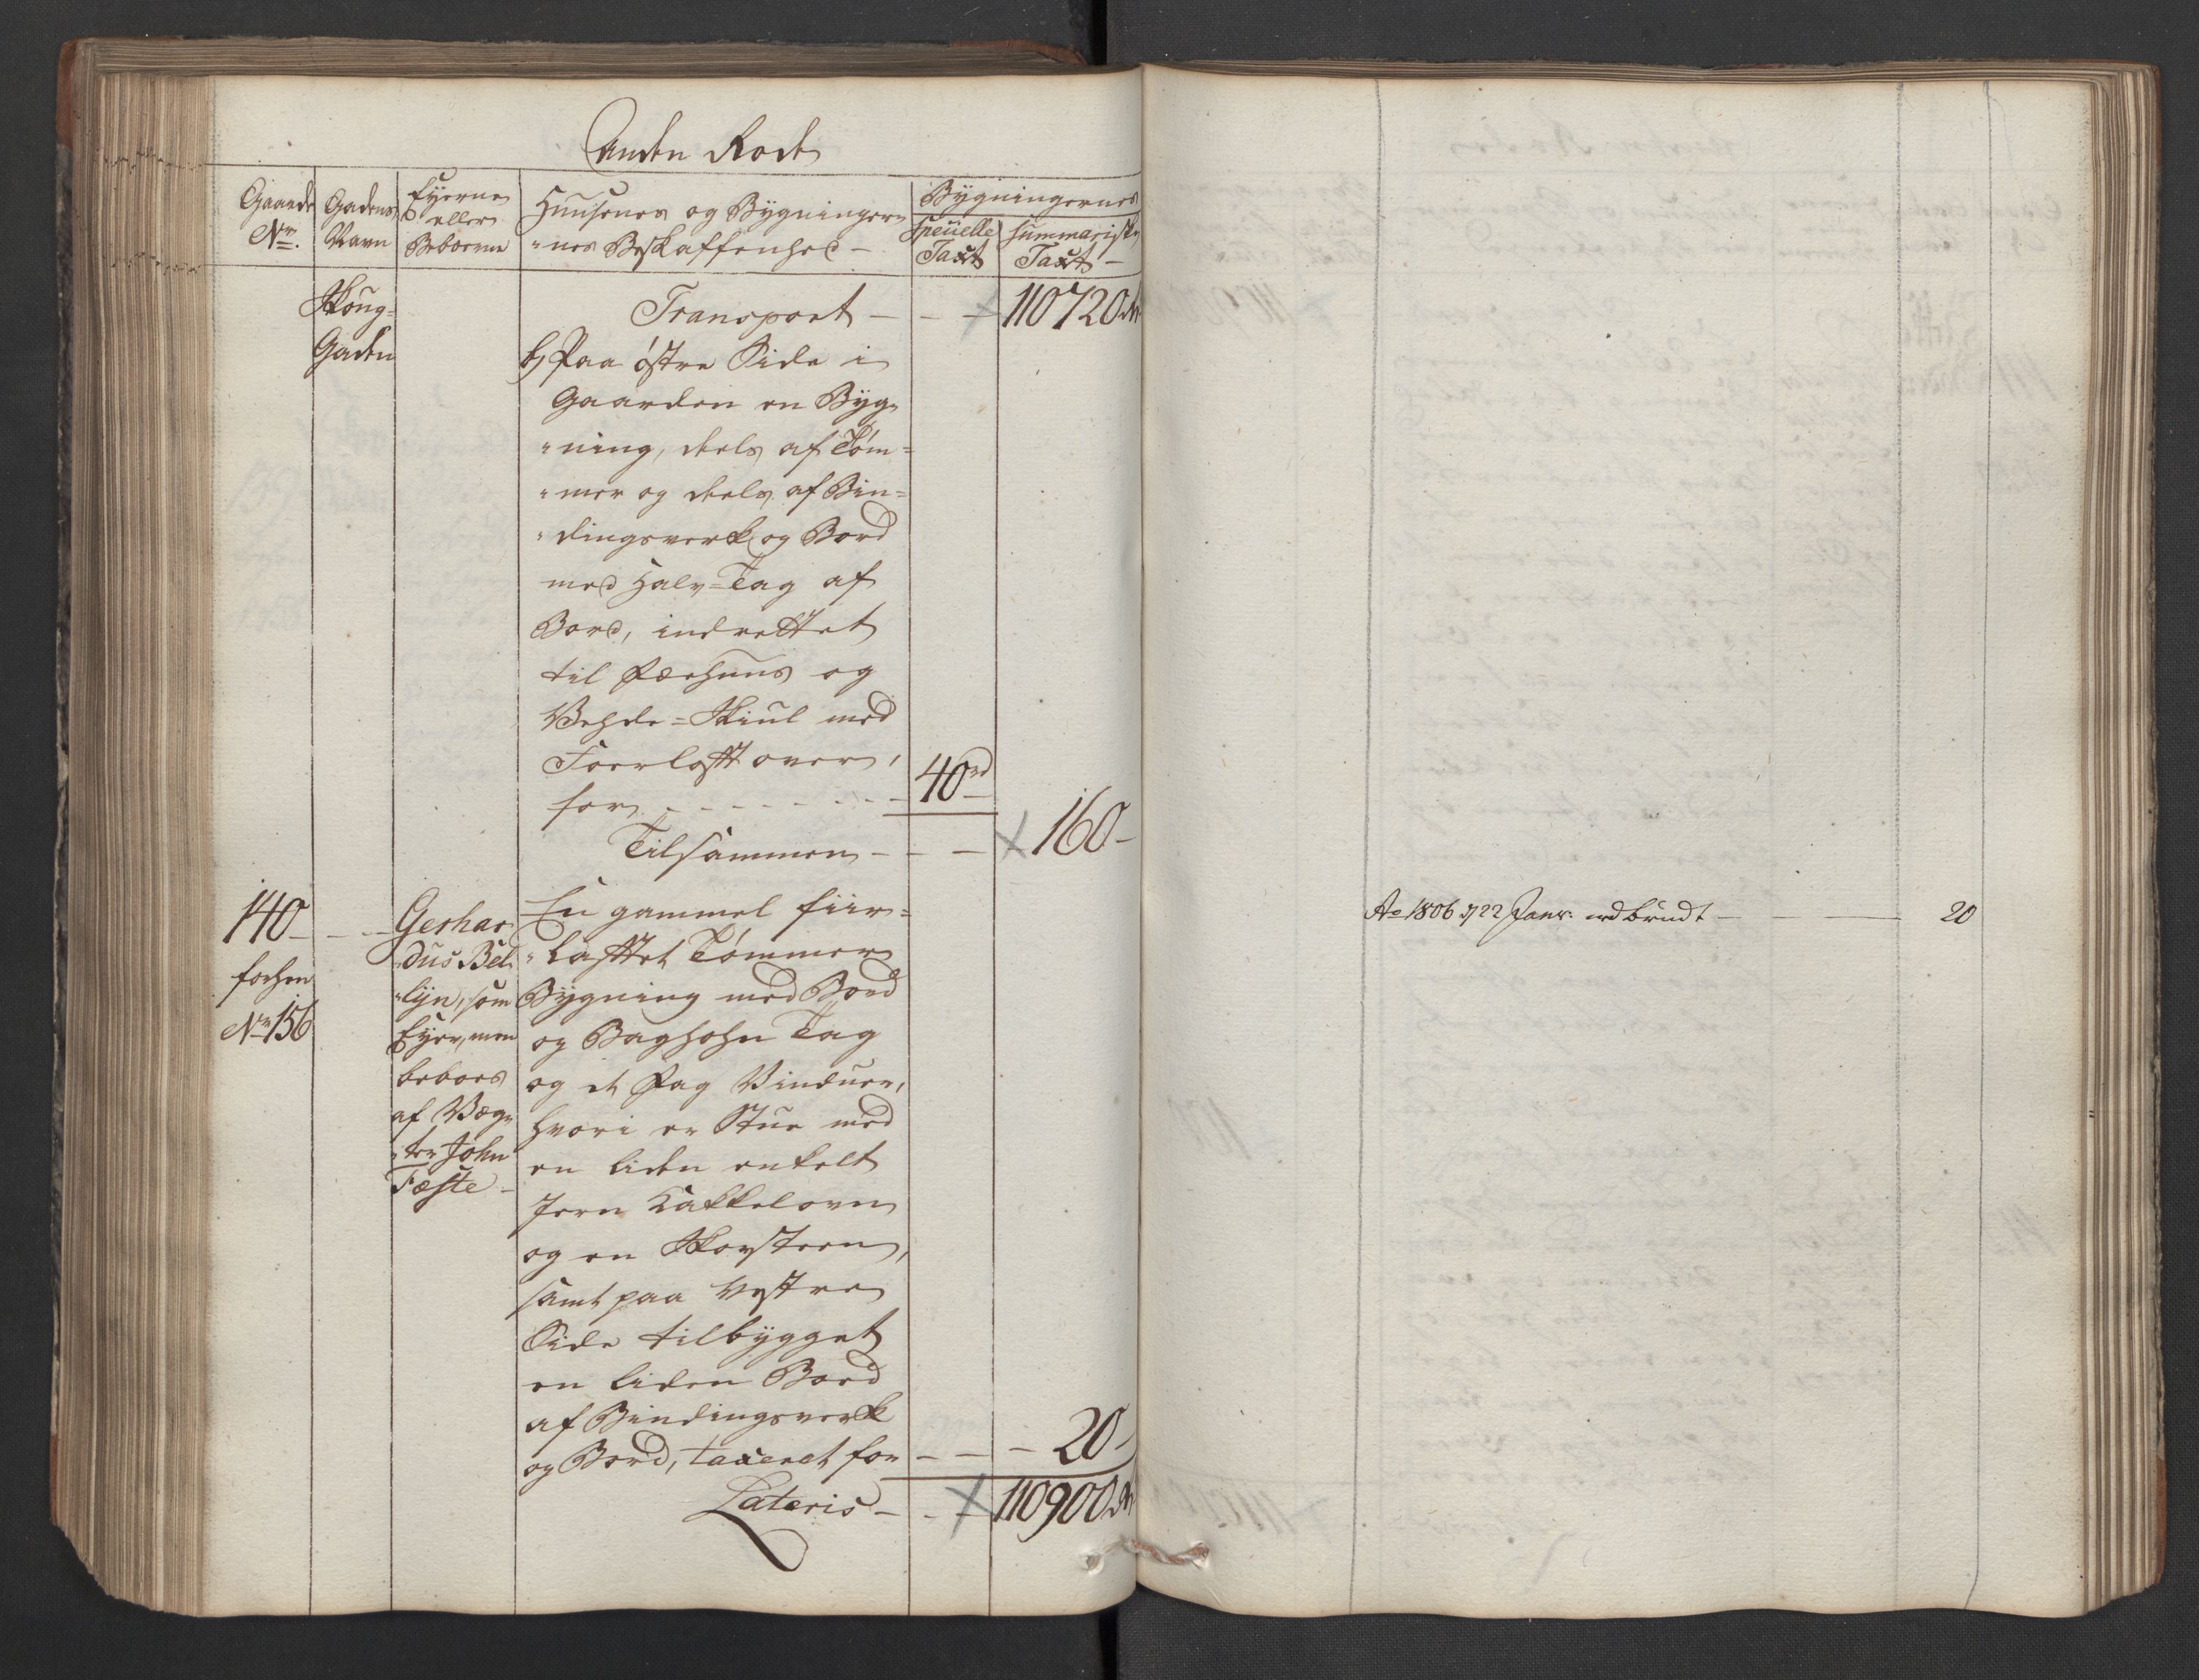 Anden Rode
Gaards Nr.
Gadens Navn
Eyerne eller Beboerne
Huusenes og Bygninger-
"nes Beskaffenhed -
Bygningernes
Speuelle Taxt
summariske Taxt -
Skoug-
Gaden
Transport - - - 110720 rd
b) Paa østre Side i
Gaarden en Byg-
"ning, deels af Tøm-
"mer og deels af Bin-
"dingsverk og Bord
med Halv-Tag af
Bord, indrettet
til Fæehuus og
Vehde-Skiul med
Foerlofft over,
for - - - - - - 40 rd
Tilsammen - - - 160 -
140 - - - Gerhar-
forhen
No 156
"dus Bel-
"lyn, som
Eyer, men
beboes
af Vægn
"ter John
Fæste -
En gammel fiir-
"lafftet Tømmer
Bygning med Bord
og Baghohn Tag
og et Fag Vinduer,
hvori er Stue med
en liden enkelt
Jern Kakkelovn
og en Skorsteen,
samt paa Vestre
Side tilbygget
en liden Boed
af Bindingsverk
og Bord, taxeret for - - - 20 -
Lateris - - 110900 rd
Ao 1806 d 22 Janr. udbrudt - - - 20